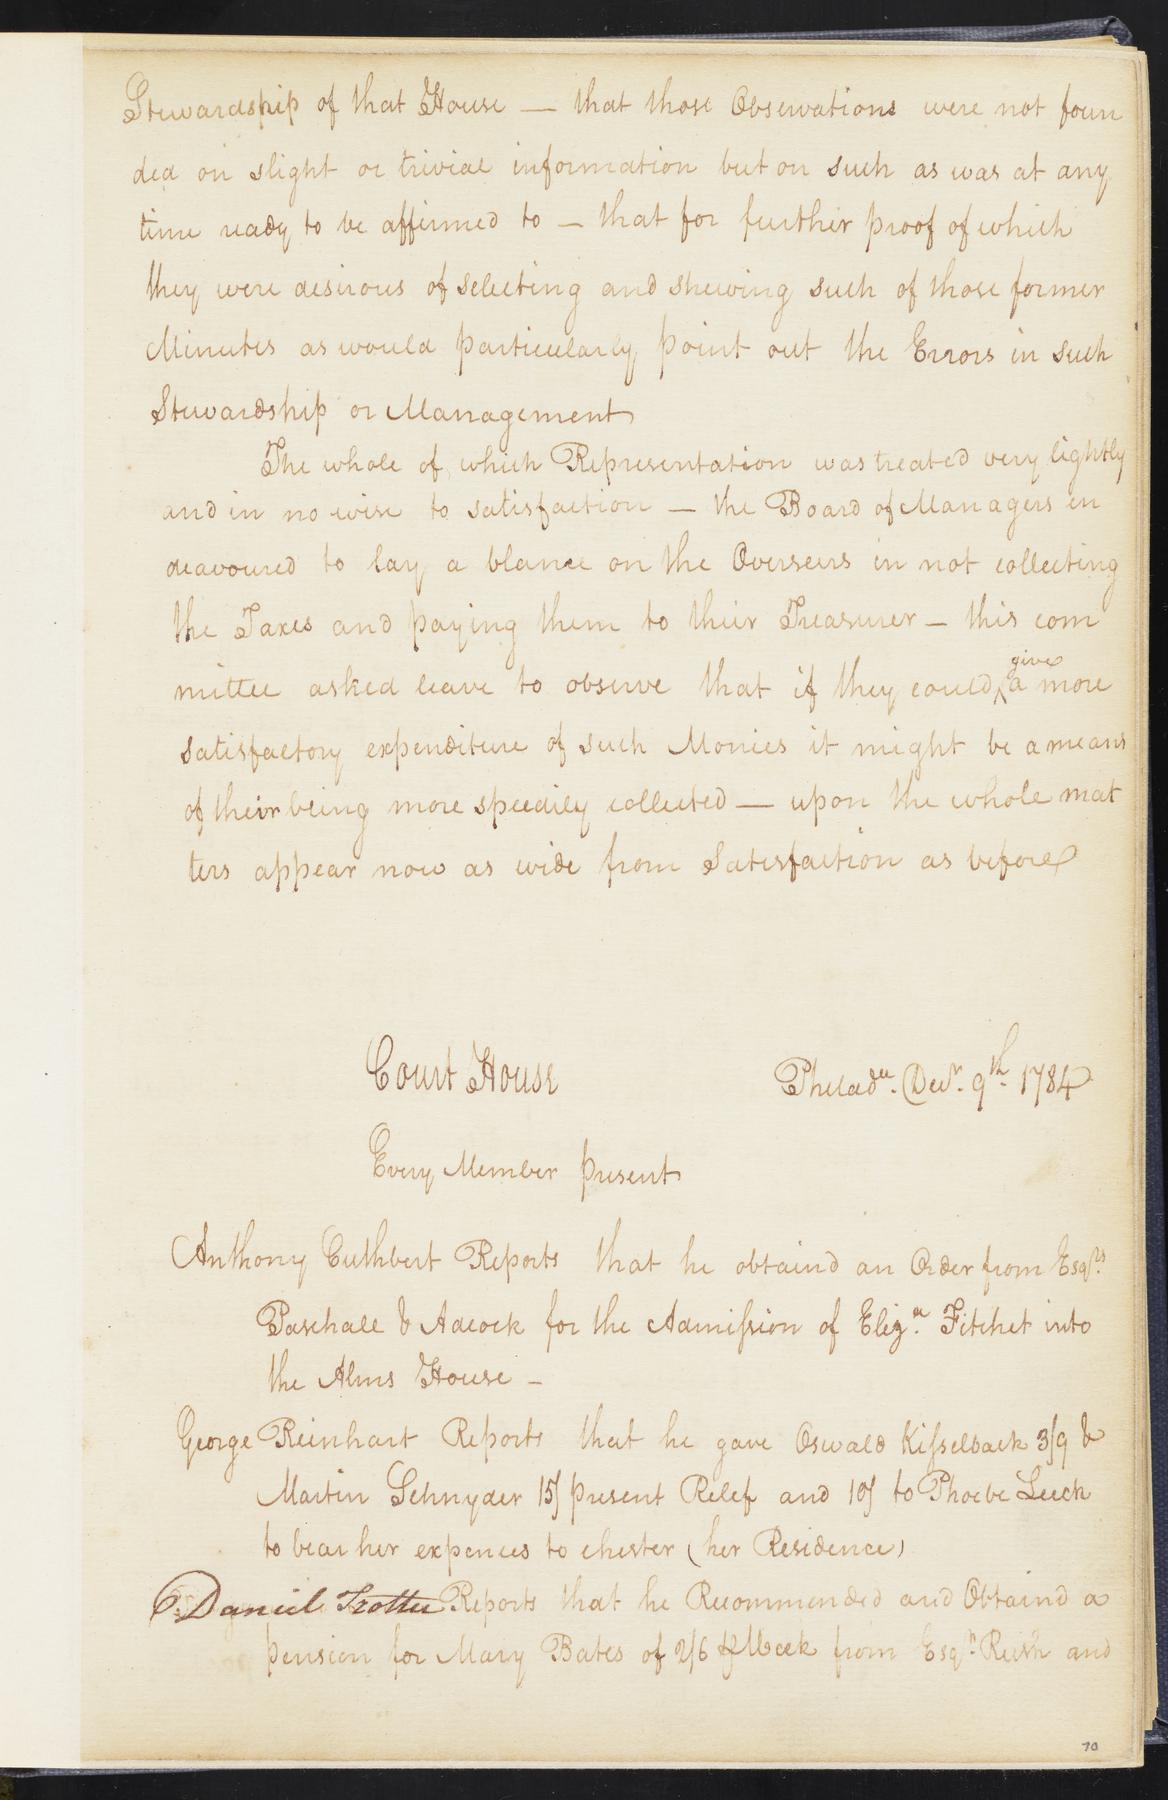 Stewardship of that House — that those Observations were not foun
ded on slight or trivial information but on such as was at any
time ready to be affirmed to — that for further proof of which
they were desirous of selecting and shewing such of those former
Minutes as would particularly point out the Errors in such
Stewardship or Management
The whole of which Representation was treated very lightly
and in no wise to satisfaction — the Board of Managers in
deavoured to lay a blame on the Overseers in not collecting
the Taxes and paying them to their Treasurer — this com
mittee asked leave to observe that if they could ^give a more
satisfactory expenditure of such Monies it might be a means
of their being more speedily collected — upon the whole mat
ters appear now as wide from Satisfaction as before
Court House Philada. Decr. 9th. 1784
Every Member present
Anthony Cuthbert Reports that he obtaind an Order from Esqrs.
Paschall & Adcock for the Admission of Eliza. Fitchet into
the Alms House —
George Reinhart Reports that he gave Oswald Kisselback 3/9 &
Martin Schnyder 15/ present Relef and 10/ to Phoebe Leech
to bear her expences to chester (her Residence)
Daniel Trotter Reports that he Recommended and Obtaind a
pension for Mary Bates of 2/6 ⅌ Week from Esqr. Rush and
70